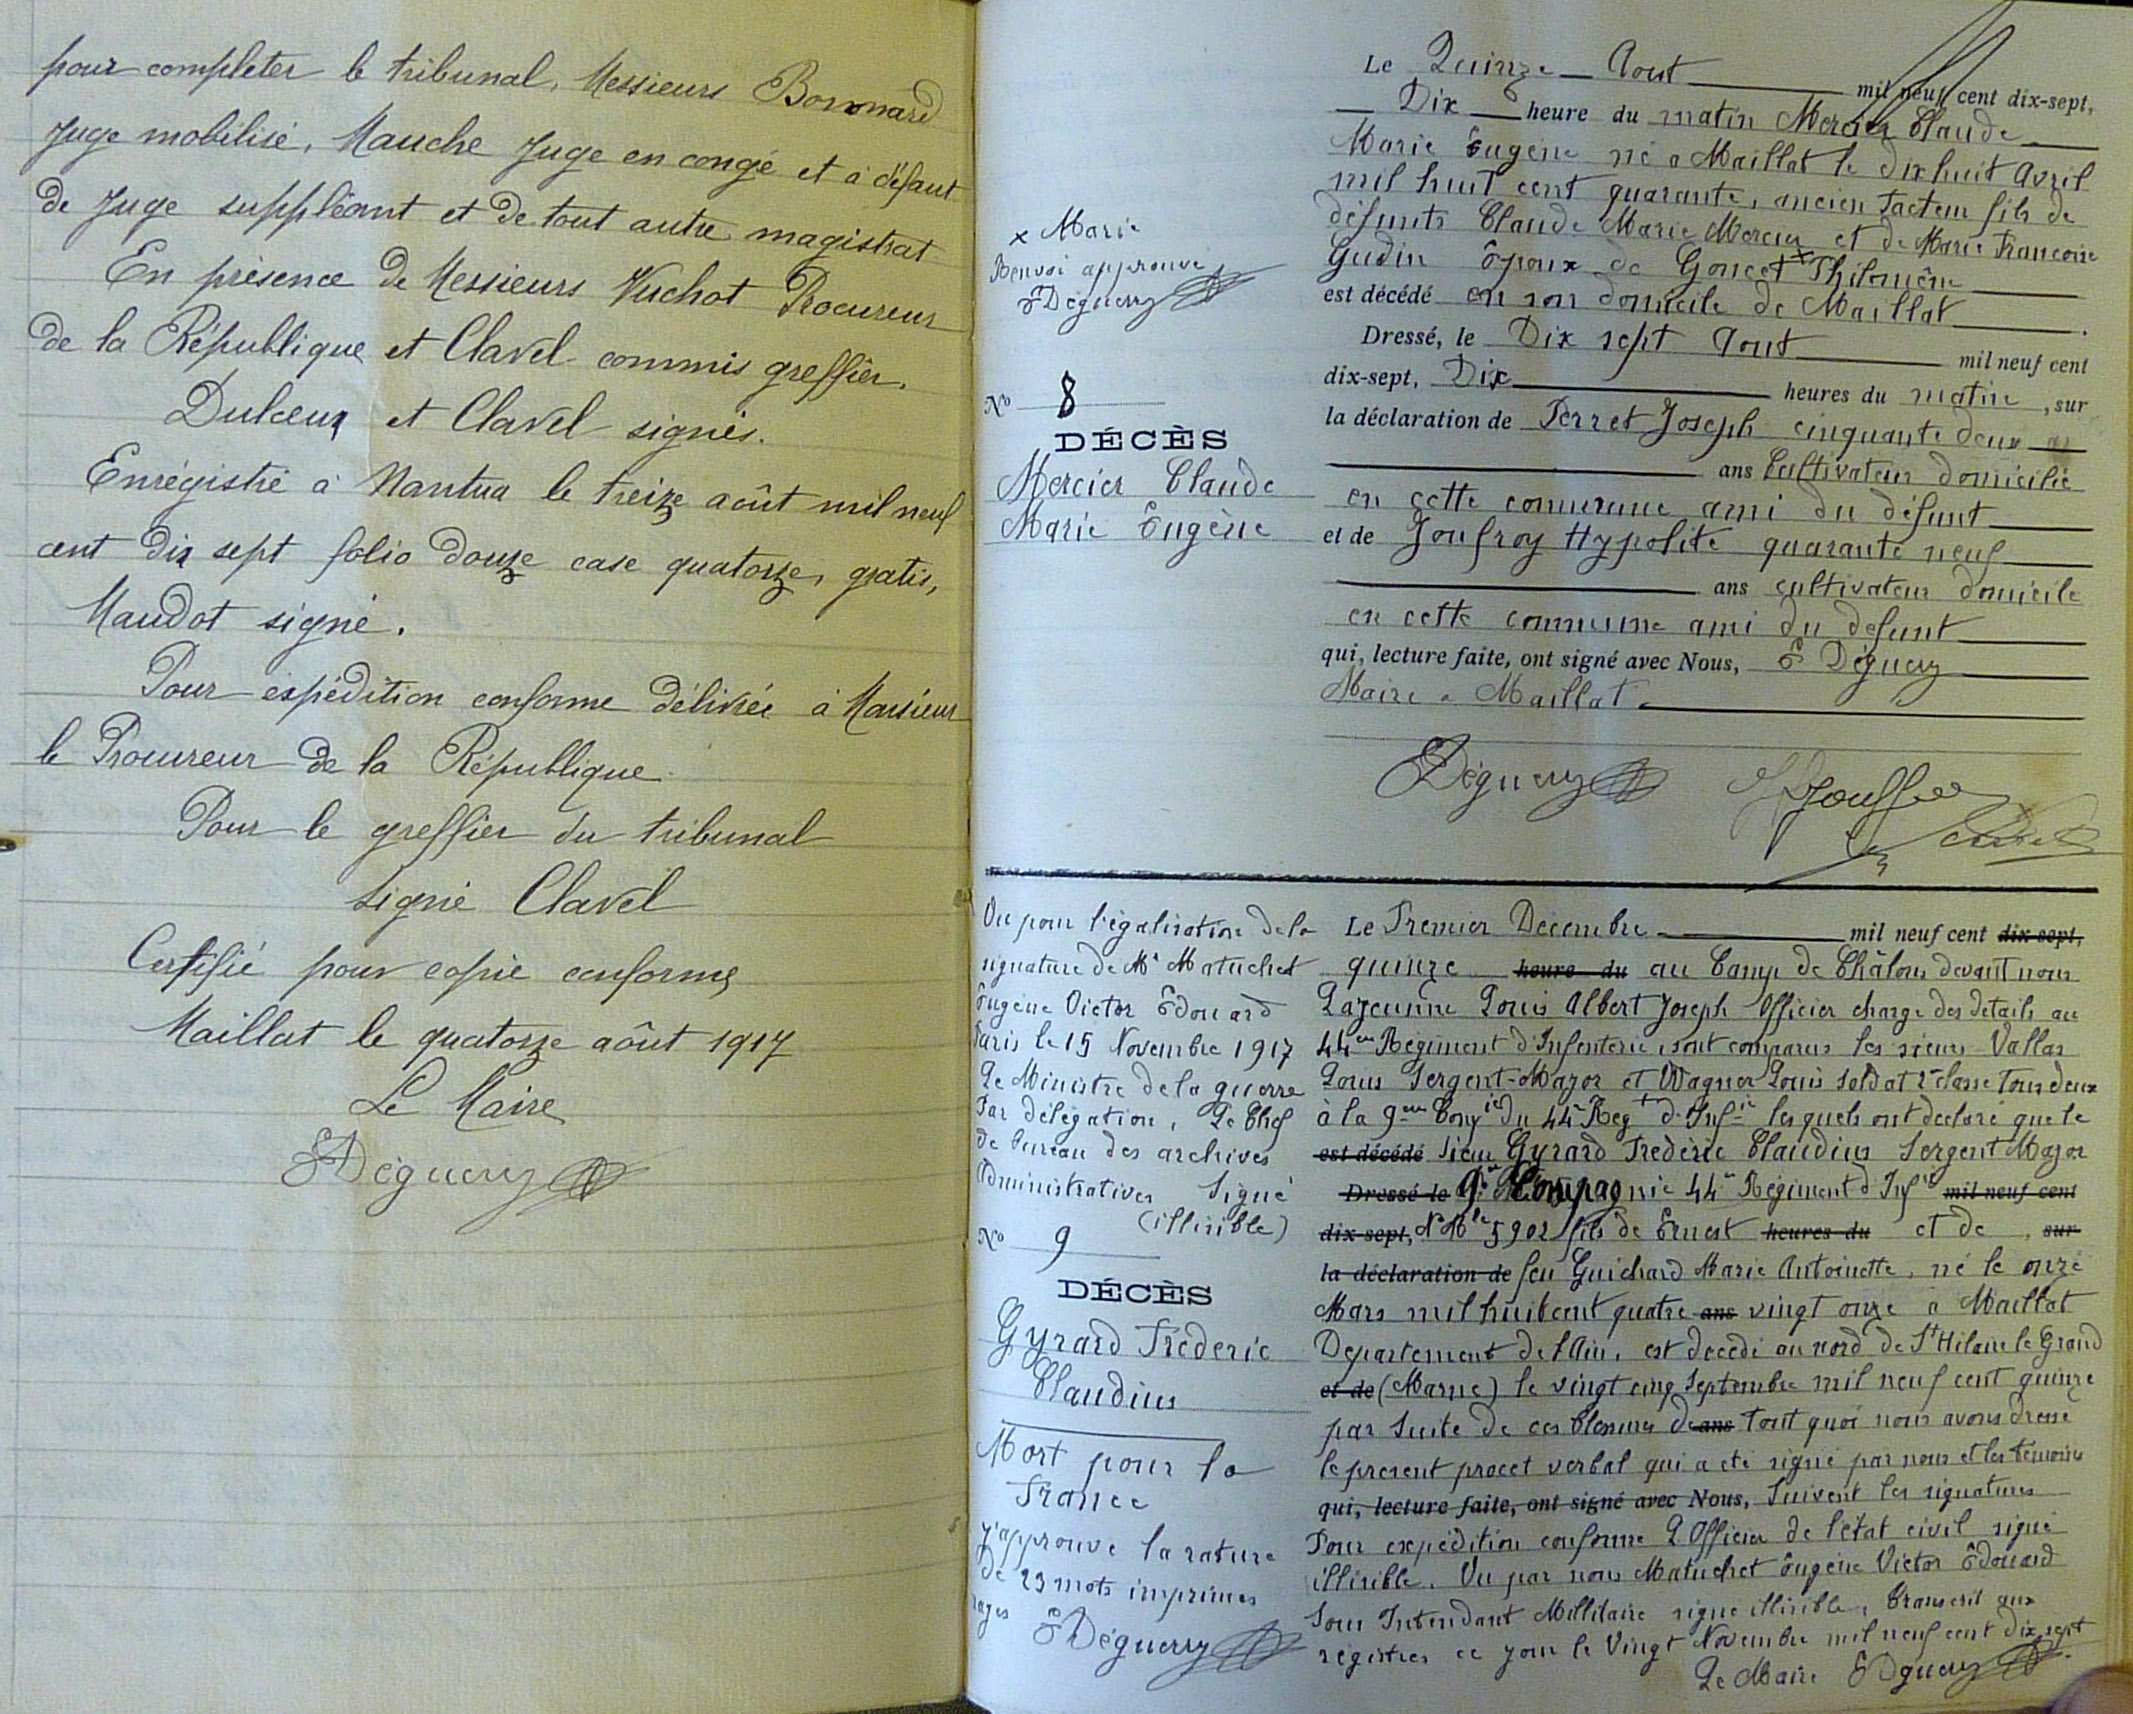 pour completer le tribunal, Messieurs Bonnard
Juge mobilisé, Mauche Juge en congé et à défaut
de Juge suppléant et de tout autre magistrat
En présence de Messieurs Vuchot Procureur
de la République et Clavel commis greffier.
Dulceux et Clavel signés.
Enrégistré à Nantua le treize août mil neuf
cent dix sept folio douze case quatorze, gratis,
Maudot signé.
Pour éxpédition conforme délivrée à Monsieur
le Procureur de la République.
Pour le greffier du tribunal
signé Clavel
Certifié pour copie conforme
Maillat le quatorze août 1917
Le Maire
EDéguerry
x Marie
Renvoi approuvé
EDéguerry
No 8
DÉCÈS
Mercier Claude
Marie Eugène
Le Quinze Aout mil neuf cent dix-sept,
Dix heure du matin Mercier Claude
Marie Eugène né a Maillat le dix huit Avril
mil huit cent quarante, ancien facteur fils de
défunts Claude Marie Mercier et de Marie Francoise
Gudin Epoux de Goncet x Philomène
est décédé en son domicile de Maillat.
Dressé, le Dix sept Aout mil neuf cent
dix-sept, Dix heures du matin, sur
la déclaration de Perret Joseph cinquante deux
ans Cultivateur domicilié
en cette commune ami du défunt
et de Joufroy Hypolite quarante neuf
ans cultivateur domicile
en cette commune ami du defunt
qui, lecture faite, ont signé avec Nous, E Déguerry
Maire a Maillat.
EDéguerry Jouffroy Perret
Vu pour l'égalisation de la
signature de Mr Matuchet
Eugène Victor Edouard
Paris le 15 Novembre 1917
Le Ministre de la guerre
Par délégation, Le Chef
de bureau des archives
Administratives Signé
(illisible)
No 9
DÉCÈS
Gyrard Fréderic
Claudius
Mort pour la
France
J'approuve la rature
de 23 mots imprimes
rayes
EDéguerry
Le Premier Decembre mil neuf cent dix-sept,
quinze heure du au Camp de Châlons devant nous
Lajeunne Louis Albert Joseph Officier chargé des details au
44em Régiment d'Infenterie, sont comparus les sieurs Vallas
Louis Sergent-Major et Wagner Louis soldat 2e classe tous deux
à la 9em Compie du 44e Regt d'Infie les quels ont declaré que le
est décédé sieur Gyrard Frederic Claudius Sergent Major
Dressé le 9e Compagnie 44e Régiment d'Infie mil neuf cent
dix-sept, No Mle 5902 fils de Ernest heures du et de, sur
la déclaration de feu Guichard Marie Antoinette, né le onze
Mars mil huit cent quatre ans vingt onze a Maillat
Departement de l'Ain, est decedé au nord de St Hilaire le Grand
et de (Marne) le vingt cinq Septembre mil neuf cent quinze
par suite de ces blessures de ans tout quoi nous avons dressé
le present procet verbal qui a eté signé par nous et les temoins
qui, lecture faite, ont signé avec Nous, Suivent les signatures
Pour expédition conforme L'Officier de l'état civil signé
illisible. Vu par nous Matuchet Eugène Victor Edouard
Sous Intendant Millitaire signe illisible, transcrit aux
régistres ce jour le Vingt Novembre mil neuf cent dix sept
Le Maire EDéguerry